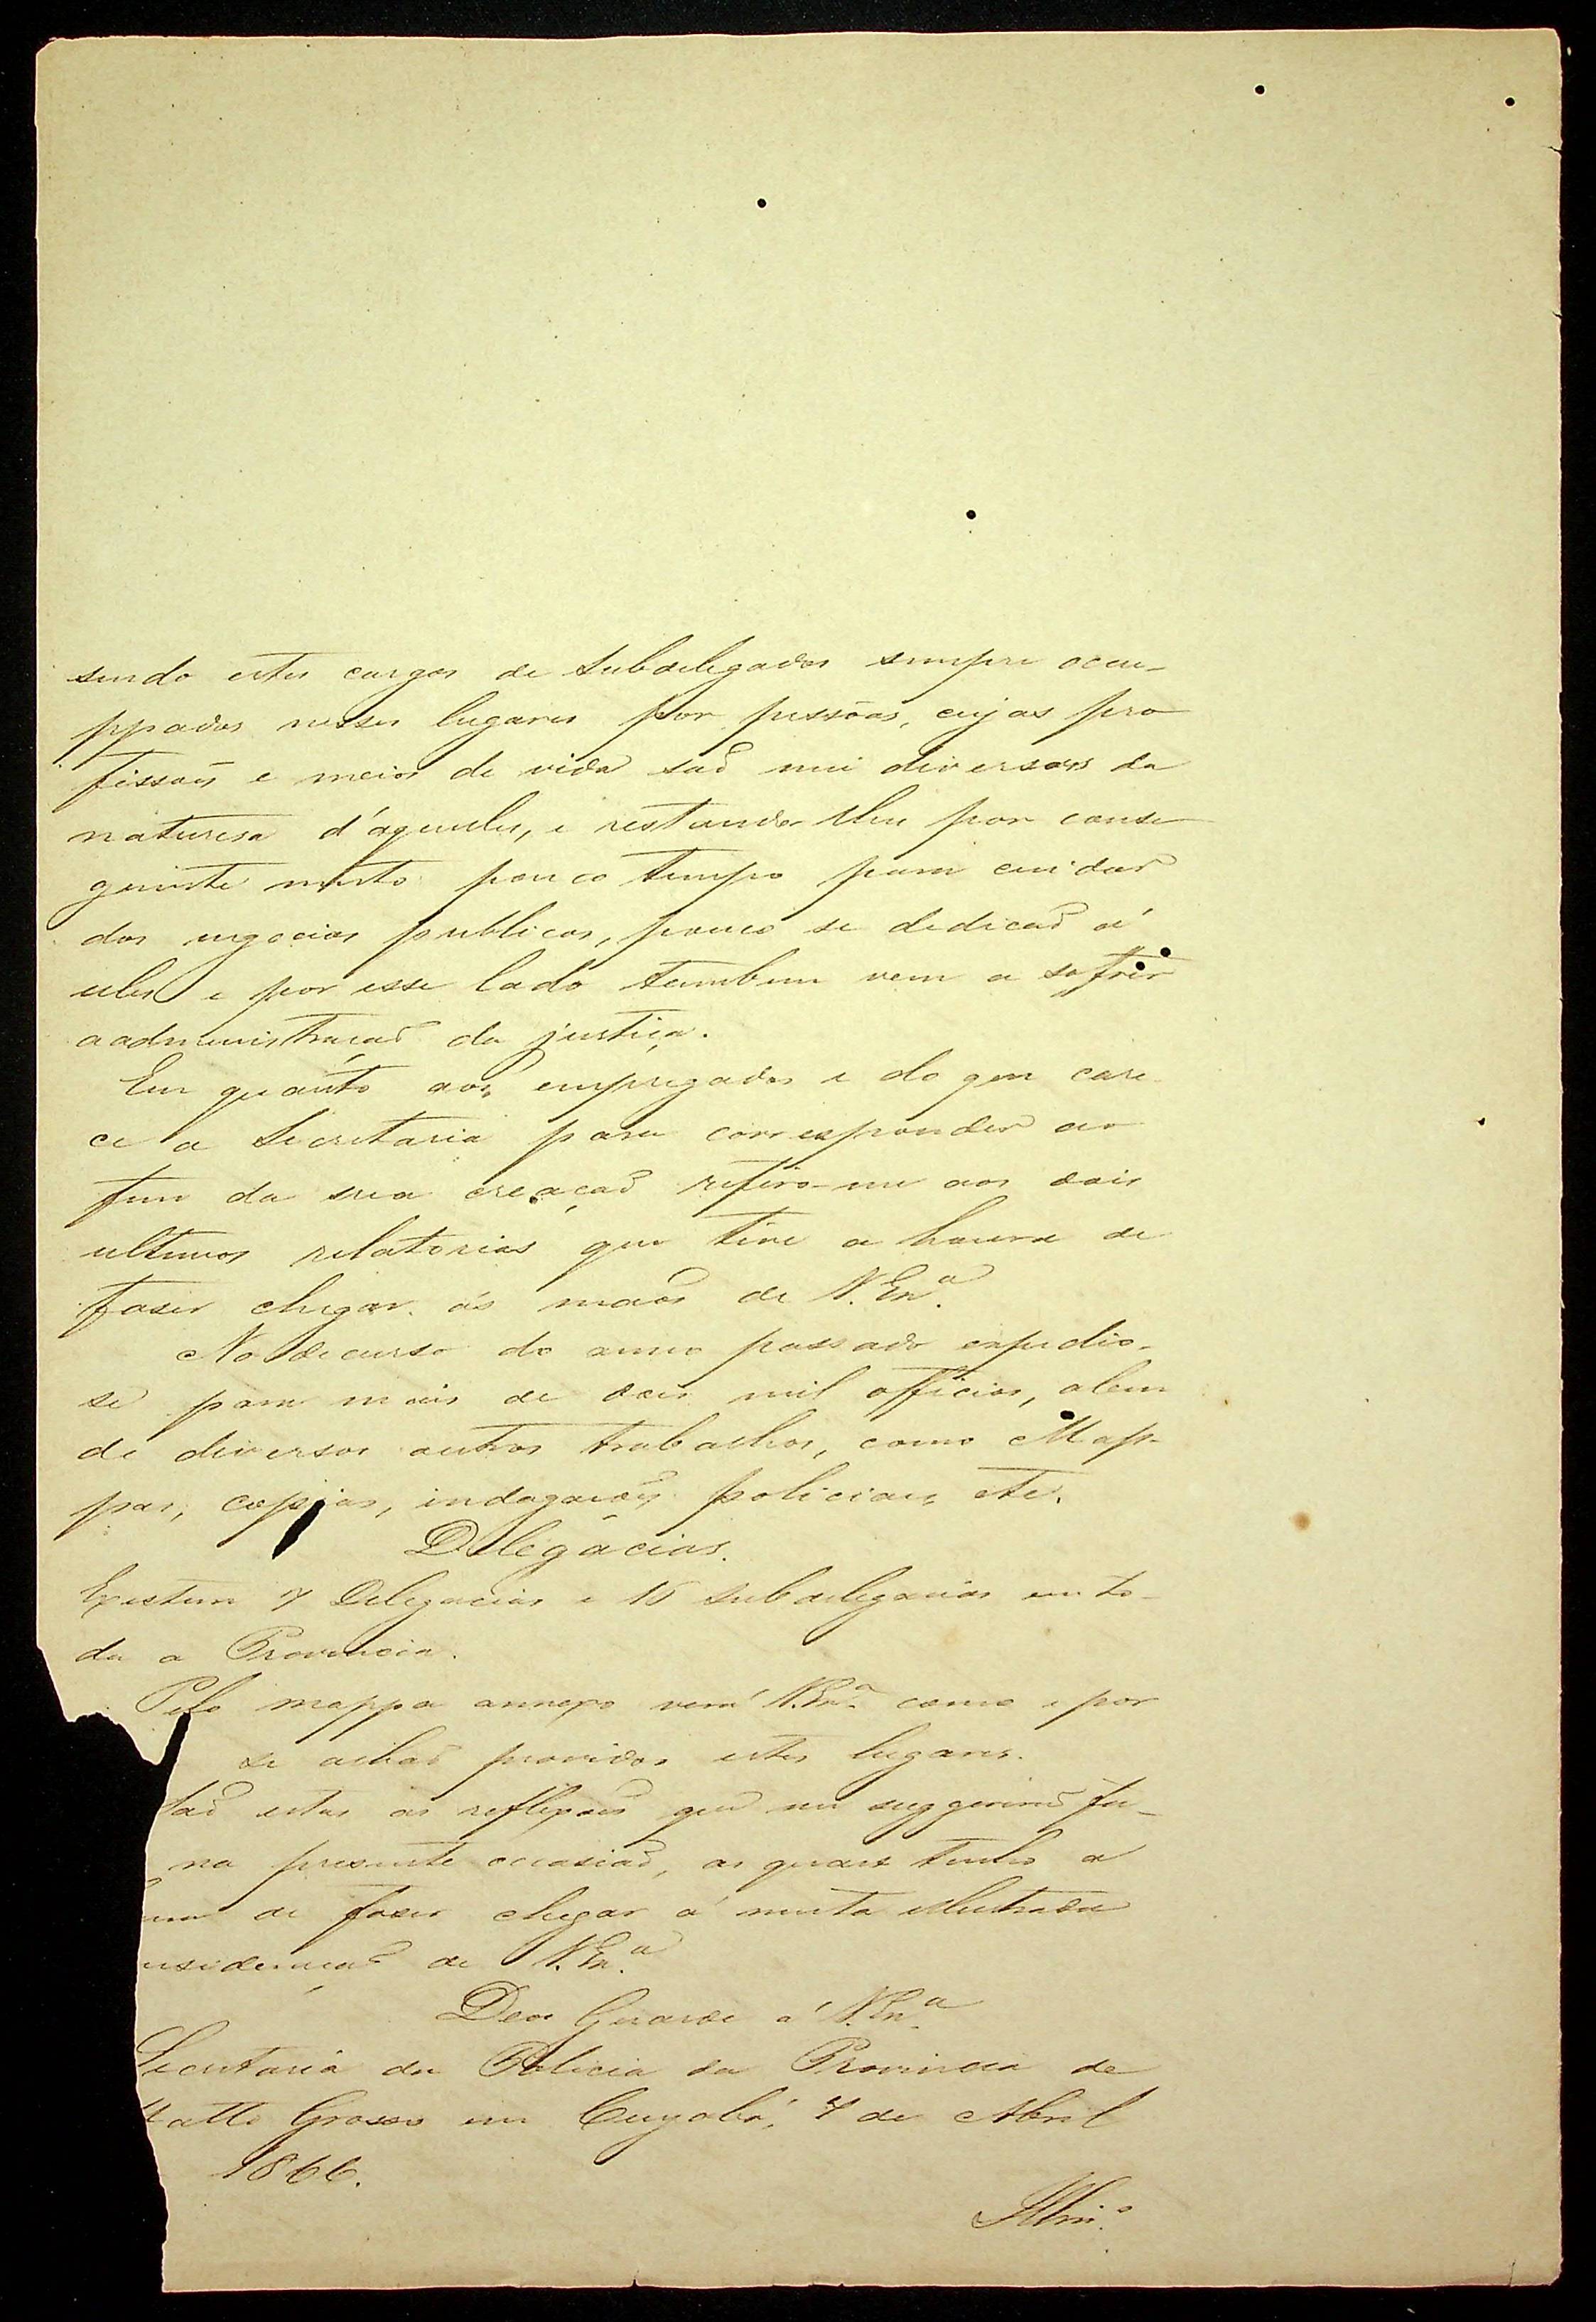 sendo estes cargos de Subdelegados sempre occu-
ppados nesses lugares por pessôas, cujas pro
fissoẽs e meios de vida saõ mui diversos da
naturesa d'aquelles, e restando lhes por conse
guinte muito pouco tempo para cuidar
dos negocios publicos, pouco se dedicaõ á
elles e por esse lado tambem vem a sofrer
a administraçaõ da justiça.
Em quanto aos empregados e do que care
ce a Secretaria para corresponder ao
fim da sua creaçaõ refiro-me aos dois
ultimos relatorios que tive a honra de
faser chegar ás maõs de V. Exª.
No decurso do anno passado expedio-
se para mais de dois mil officios, alem
de diversos outros trabalhos, como Map-
pas, copias, indagaçoẽs policiaes etc.
Delegacias.
Existem 7 Delegacias e 15 subdelegacias em to-
da a Provincia.
Pelo mappa annexo verá V. Exª. como e por
se achaõ providos estes lugares.
saõ estas as reflexoẽs que me suggeriraõ fa-
na presente occasiaõ, as quaes tenho a
de faser chegar á muita illustrada
nsideraçaõ de V. Exª.
Deos Guarde á V. Exª.
Secretaria da Policia da Provincia de
Matto Grosso em Cuyabá, 7 de Abril
1866.
Illmº.